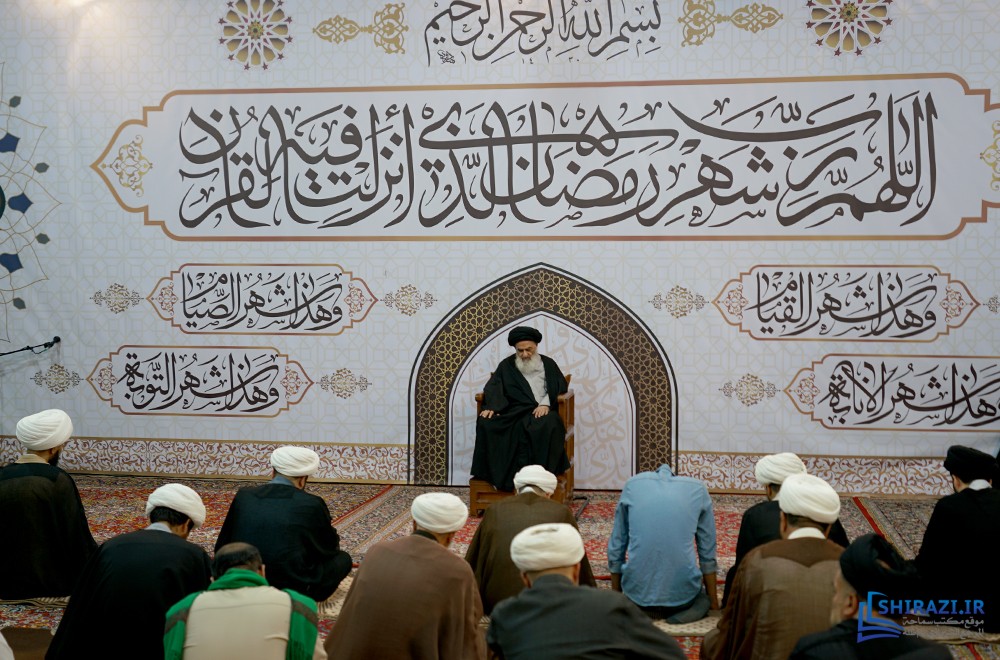 بسم الله الرحمن الرحيم
اللهم رب شهر رمضان الذي أنزلت فيه القرآن
وهذا شهر القيام
وهذا شهر الصيام
وهذا شهر الإنابة
وهذا شهر التوبة
SHIRAZI.IR
موقع مكتب سماحة